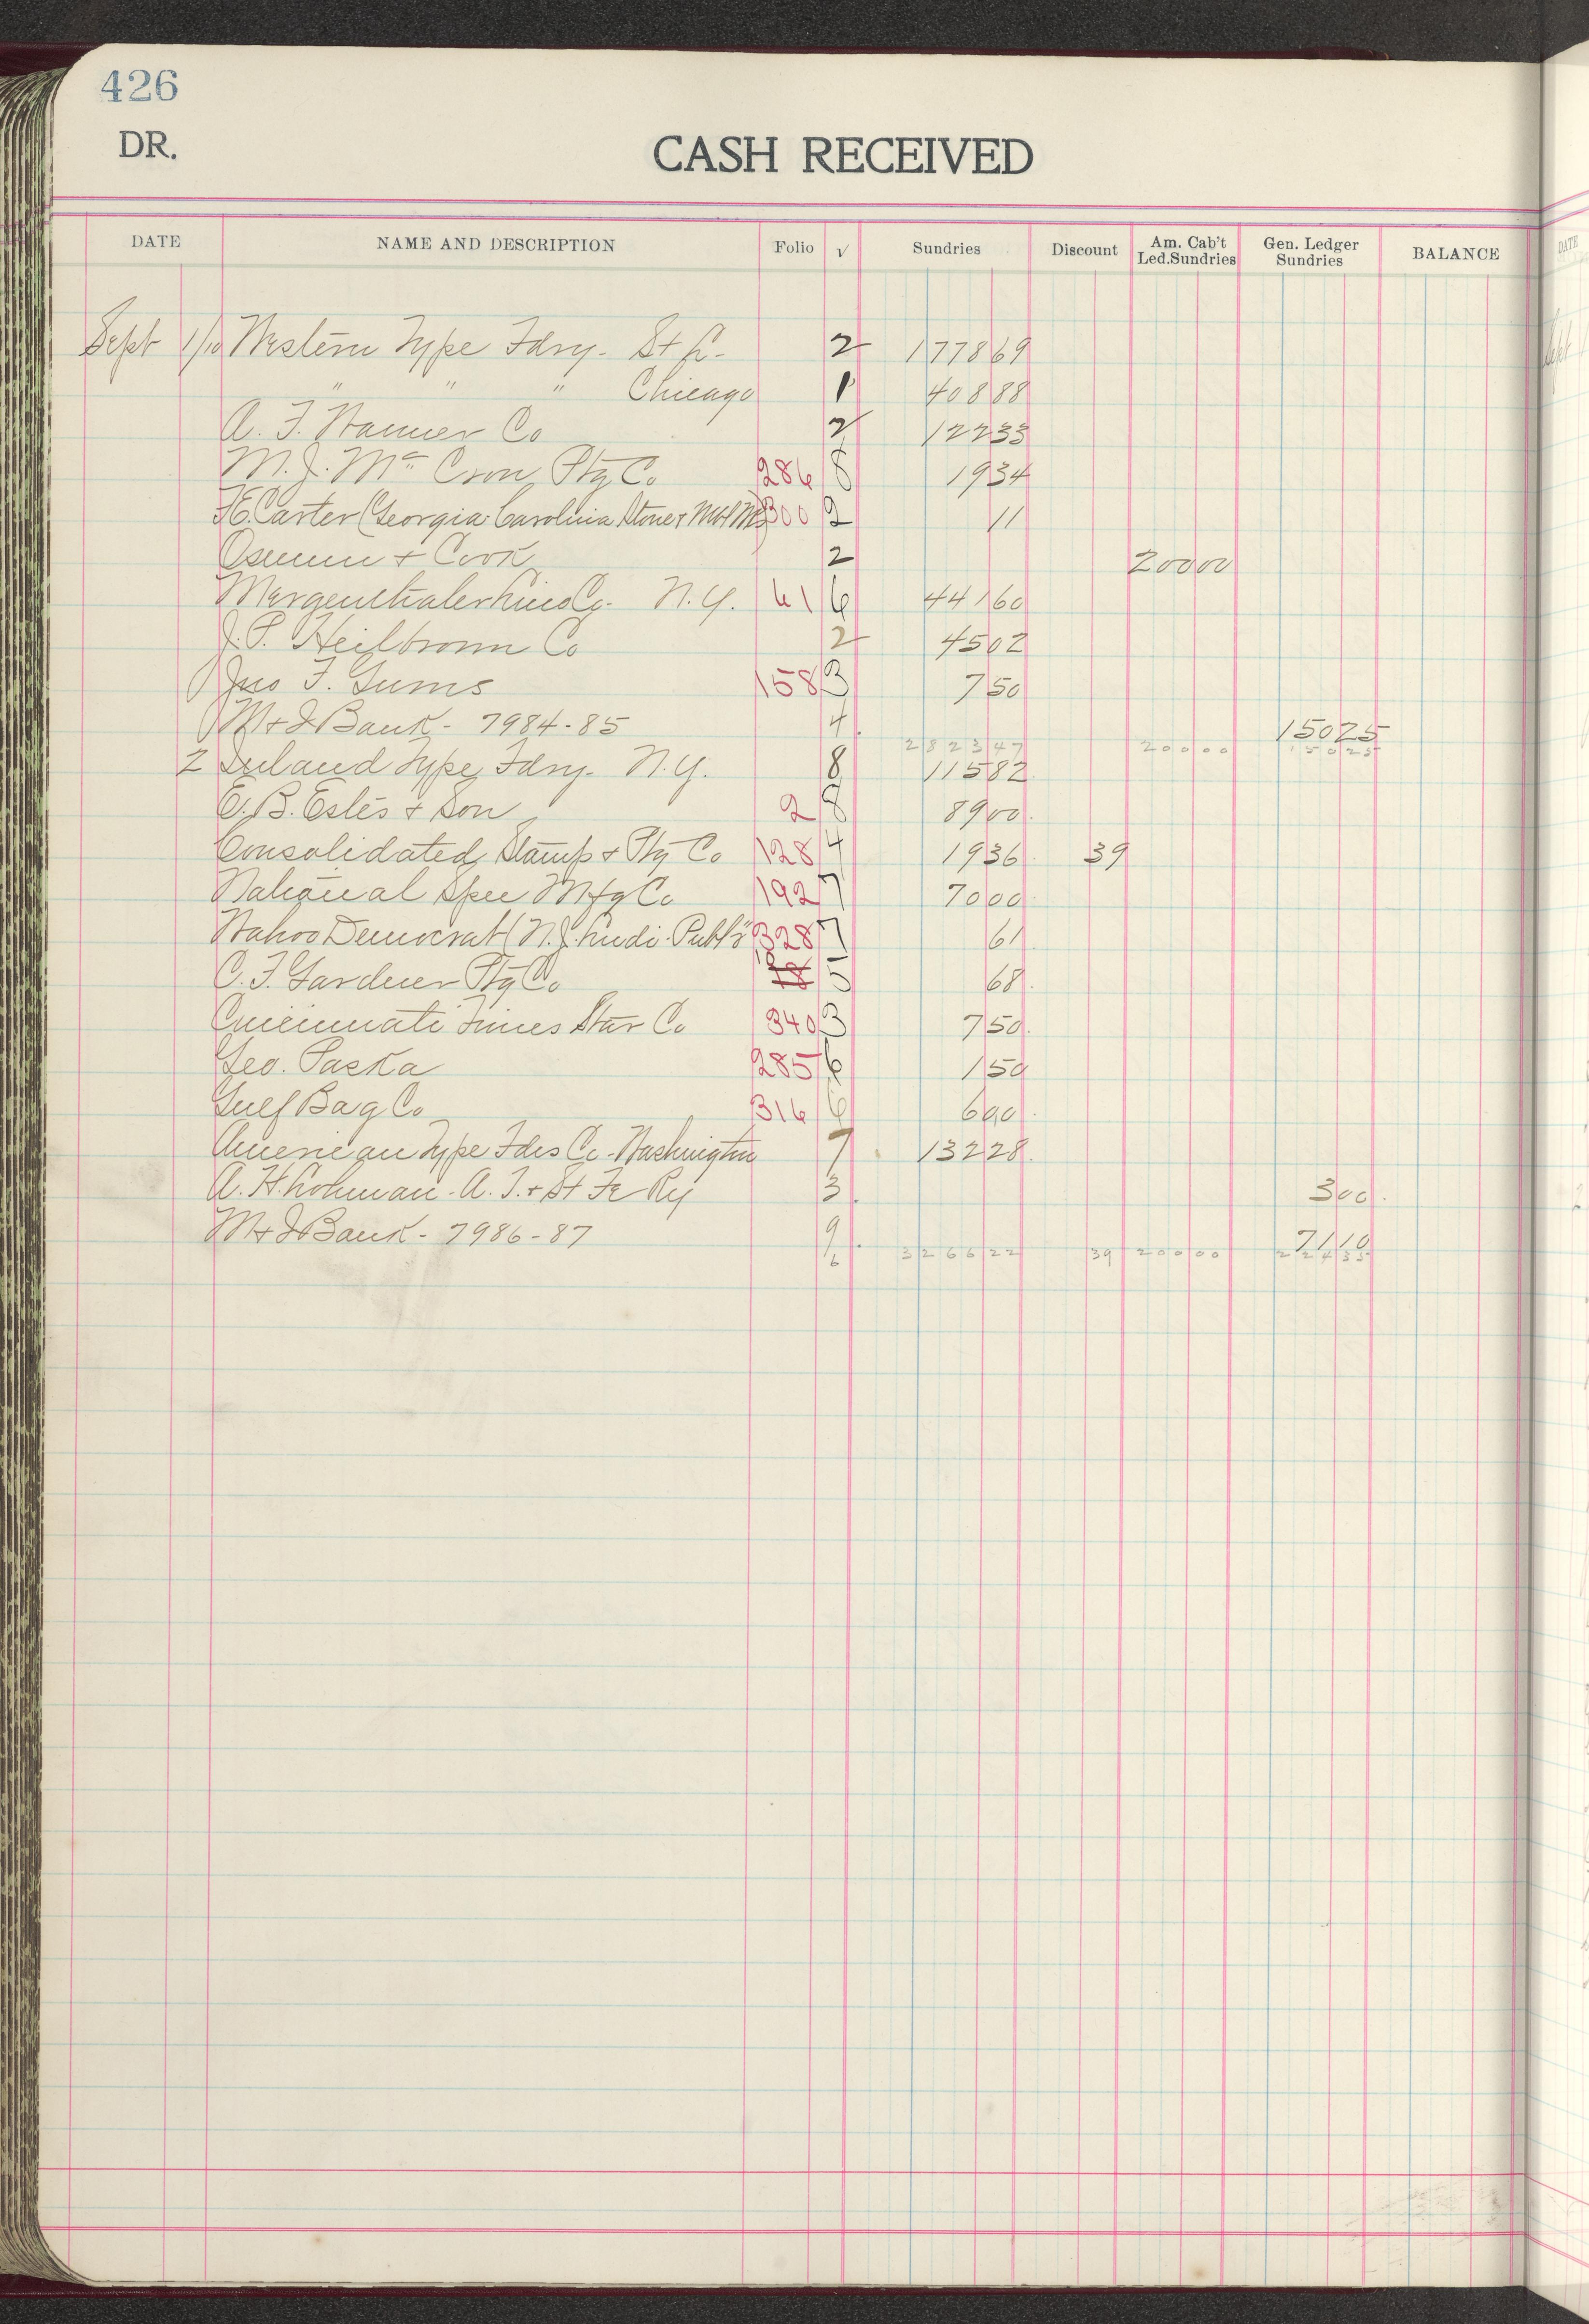 426
DR.
CASH RECEIVED
DATE NAME AND DESCRIPTION Folio √ Sundries Discount Am. Cab't Led.Sundries Gen. Ledger Sundries BALANCE
Sept 1/10 Western Type Fdry. St L. 2 1778 69
" " " Chicago 1 408 88
A. F. Wanner Co 2 122 33
M. J. Mc Coon Ptg Co 286 8 19 34
Carter (Georgia Carolina Stone & 300 2 11
Osmun & Cook 2 200 00
Mergenthaler Lino Co. N.Y. 61 6 441 60
J. P. Heilbronn Co 2 45 02
Jno F. Gums 158 3 7 50
M & I Bank - 7984-85 4 150 25
2823 47 200 00 150 25
2 Inland Type Fdry. N.Y. 8 115 82
E. B. Estes & Son 2 8 89 00
Consolidated Stamp & Ptg Co 128 4 19 36 39
National Spec Mfg Co 192 7 70 00
Wahoo Democrat (N. J. Ludi. Publ'r 328 7 61
C. F. Gardner Ptg Co 18 5 68
Cincinnati Times Star Co 340 3 7 50
Geo. Paska 285 6 1 50
Gulf Bag Co 316 6 6 00
American Type Fdrs Co. Washington 7 132 28
A. H. Lohman. A. T. & St Fe Ry 3 3 00
M & I Bank - 7986-87 9 71 10
6 3266 22 39 200 00 224 35